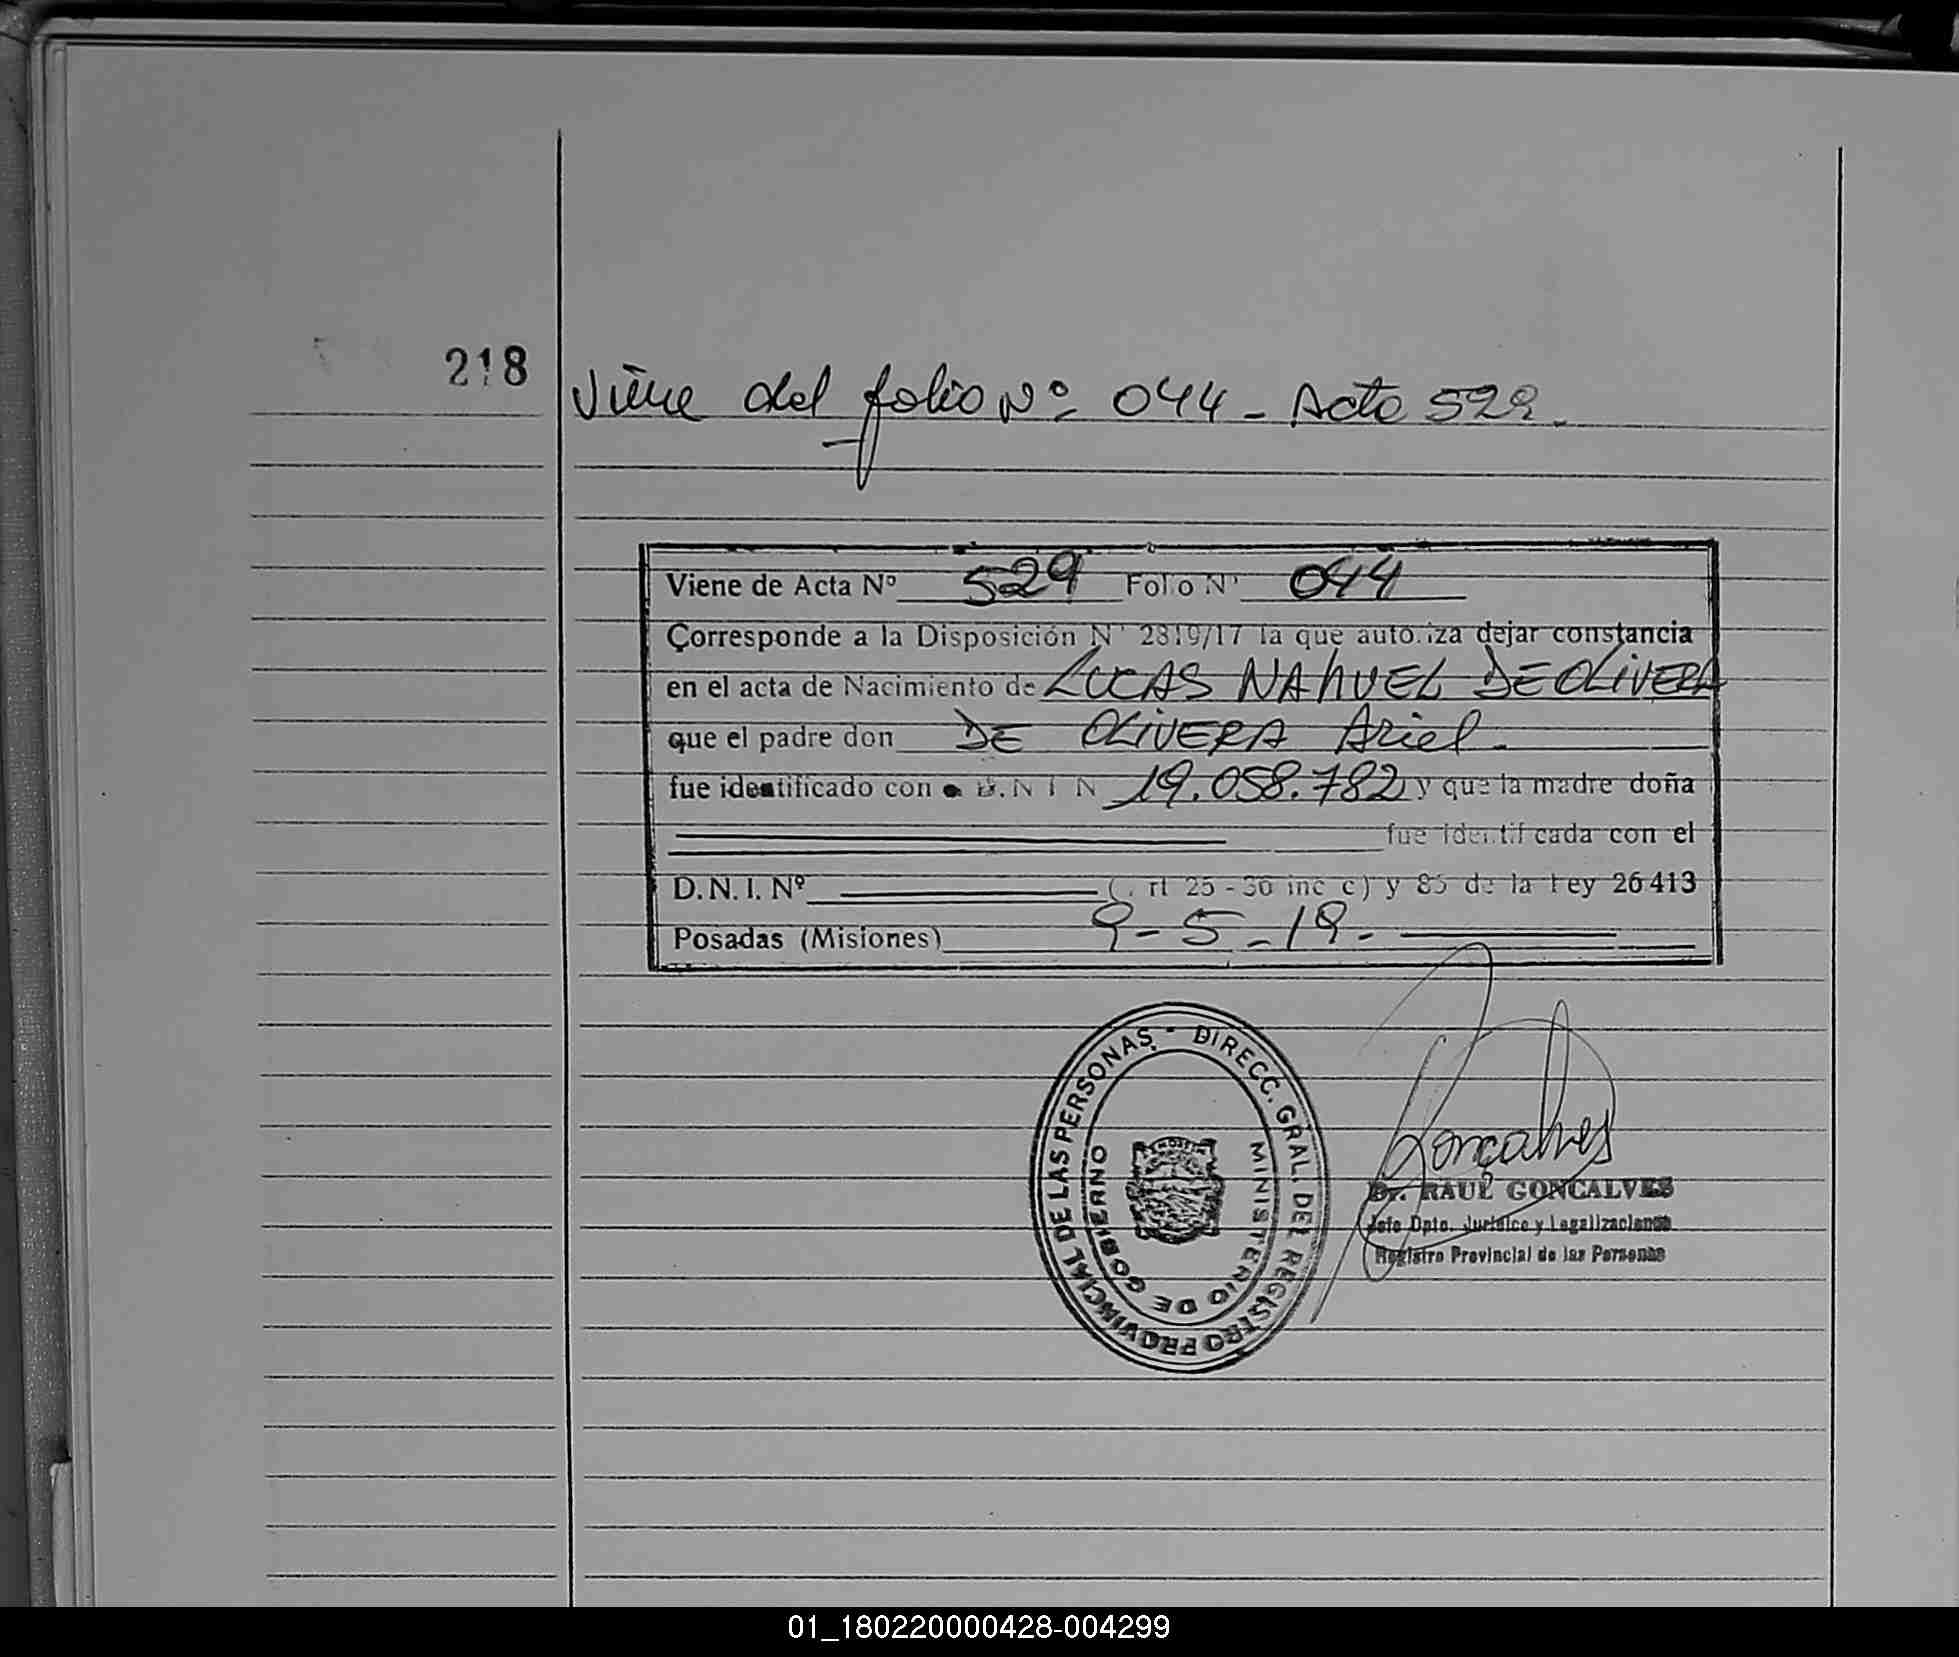 218
Viene del folio Nº 044 - Acta 529.
Viene de Acta Nº 529 Folio Nº 044
Corresponde a la Disposición Nº 2819/17 la que autoriza dejar constancia
en el acta de Nacimiento de LUCAS NAHUEL DE OLIVERA
que el padre don DE OLIVERA Ariel.
fue identificado con D.N.I N 19.058.782 y que la madre doña
fue identificada con el
D.N.I. Nº (Art 25 - 36 inc c) y 85 de la Ley 26413
Posadas (Misiones) 9-5-19.
DIRECC. GRAL. DEL REGISTRO PROVINCIAL DE LAS PERSONAS -
MINISTERIO DE GOBIERNO
Goncalves
Dr. RAUL GONCALVES
Jefe Dpto. Jurídico y Legalizaciones
Registro Provincial de las Personas
01_180220000428-004299